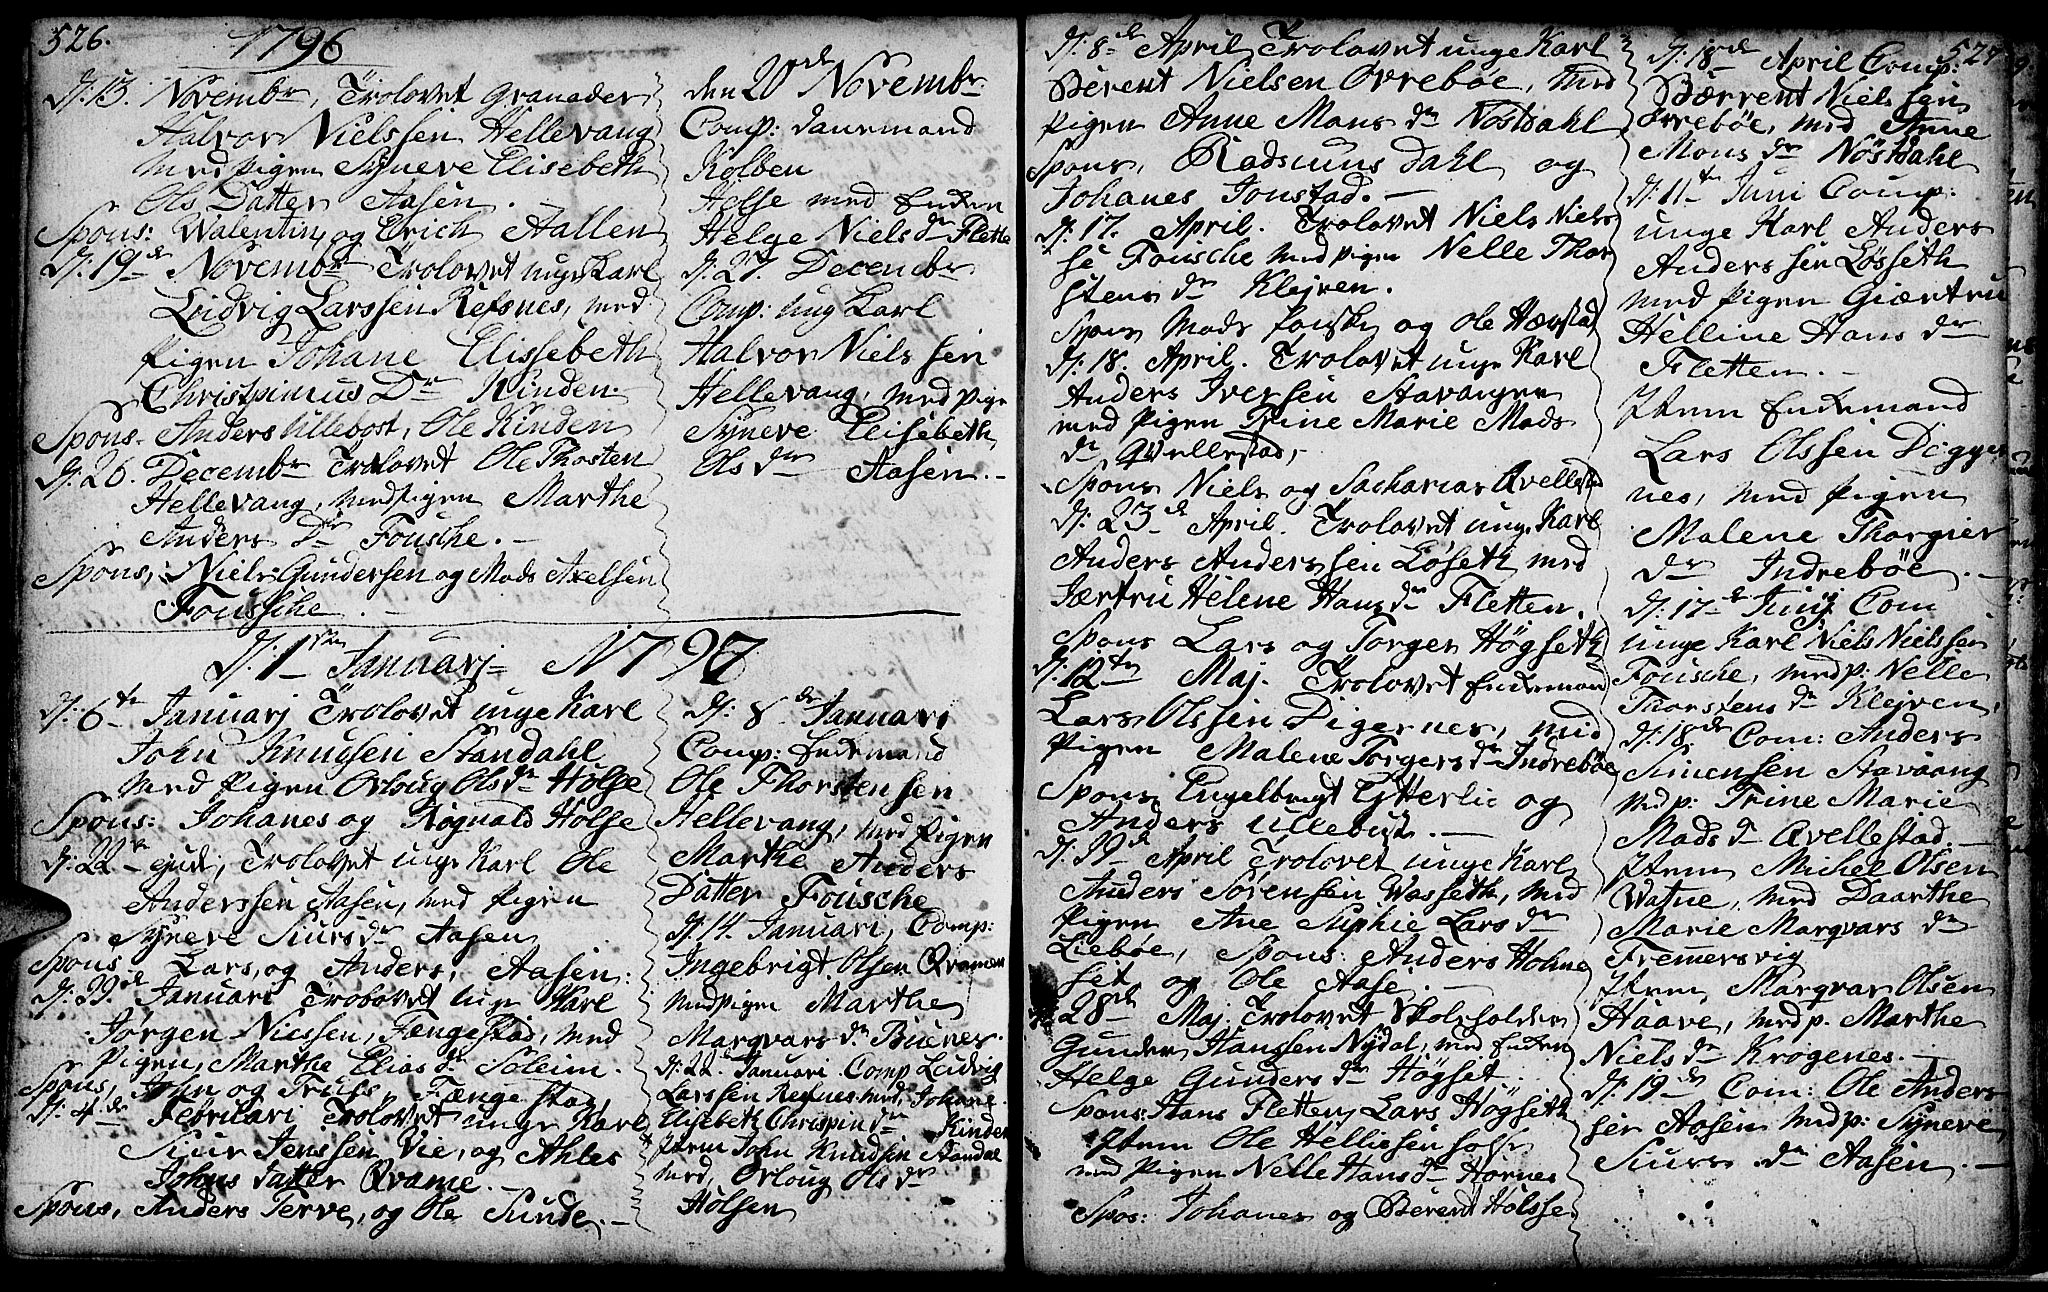 526.
1796
D: 13. Novembr, Trolovet Granader
Halvor Nielssen Hellevang
med Pigen Syneve Elisebeth
Ols Datter Aasen.
Spons: Walentin og Erich Aallen
D: 19de Novembr Trolovet unge Karl
Ludvig Larssen Refsnes, med
Pigen Johane Elissebeth
Christpinus Dr Kinden.
Spons. Anders Ullebost, Ole Kinden
D: 26. Decembr Trolovet Ole Thosten
Hellevang, med Pigen Marthe
Anders Dr Fousche.
Spons, Niels Gundersen og Mads Axelsen
Fousche.
den 20de Novembr.
Comp: Danemand
Kolben
Holse med Enken
Helge Niels dr Flette
D: 27. Decembr
Comp: ung Karl
Halvor Nielssen
Hellevang, med Pige
Syneve Elisebeth
Ols dr Aasen.
D: 1ste Januarj 1797
D: 6te Januarj Trolovet unge Karl
John Knudsen Standahl
med Pigen Orloug Ols dr Holse
Spons: Johanes og Rognald Holse
D: 22de ejusd, Trolovet unge Karl Ole
Anderssen Aasen, med Pigen
Syneve Siurs dr Aasen
Spons Lars, og Anders, Aasen.
D: 29de Januari Trolovet unge Karl
Jørgen Nielssen, Fængestad, med
Pigen, Marthe Elias dr Soleim.
Spons, John og Truls, Fængestad,
D: 4de Februari Trolovet unge Karl
Siur Jenssen Vie, og Ahles
Johns Datter Qvame.
Spons, Anders Terve, og Ole Sunde.
D: 8de Januari
Comp: Enkemand
Ole Thorstenssen
Hellevang, med Pigen
Marthe Anders
Datter Fousche
D: 14. Januari, Comp:
Ingebrigt Olsen Qvamen
med Pigen Marthe
Marqvars dr Buenes.
D: 22d Januari Comp Ludvig
Larssen Refsnes med, Johane
Elisebeth Chrispin dr Kinden
Item John Knudsen Standal
med, Orloug Ols dr
Holsen
D: 8de April, Trolovet unge Karl
Berent Nielsen Ørrebøe, med
Pigen Anne Mons dr Nøstdahl
Spons, Radmuns Dahl og
Johanes Jonstad.
D: 17. April. Trolovet Niels Niels
se Fousche med Pigen Nelle Thor
stens dr Klejven.
Spons Mads Fouske og Ole Hævstad
D: 18. April. Trolovet unge Karl
Anders Iversen Stavangen
med Pigen Trine Marie Mads
dr Qvellestad,
Spons Niels og Sacharias Qvellestad
D: 23de April. Trolovet unge Karl
Anders Anderssen Løseth med
Jærtru Helene Hans dr Fletten.
Spons Lars og Torger Høgseth
D: 12ten Maj. Trolovet Enkeman
Lars Olssen Digernes, med
Pigen Malene Torgers dr Indrebøe
Spons, Engelbregt Ytterlie og
Anders Ullebust.
D: 29de April Trolovet unge Karl
Anders Sørensen Wasseth, med
Pigen Ane Suphie Lars dr
Liebøe, Spons: Anders Holme
set og Ole Aase.
28de Maj. Trolovet Skoleholder
Gunder Hanssen Nydal, med Enken
Helge Gunders dr Høgset.
Spons: Hans Fletten, Lars Høgseth
Item Ole Hellissen Holse
med Pigen Nelle Hans dr Hornes
Spos: Johanes og Berent Holsse
527
D: 18de April Comp:
Bærrent Nielssen
Ørrebøe, med Anne
Mons dr Nøstdahl
D: 11te Juni Comp:
unge Karl Anders
Anderssen Løsseth
med Pigen Giærtru
Helline Hans dr
Fletten.
Item Enkemand
Lars Olssen Digger
nes, med Pigen
Malene Thorgier
dr Indrebøe.
D: 17de Junij Com
unge Karl Niels Nielssen
Fousche, med p: Nelle
Thorstens dr Klejven,
D: 18de Com: Anders
Simensen Stavaang
med p: Trine Marie
Mads dr Qvellestad.
Item Michel Olsen
Watne, med Daarthe
Marie Marqvars dr
Fremersvig
Item Marqvar Olsen
Haave, med p. Marthe
Niels dr Krogenes.
D: 19de Com: Ole Anders
sen Aasen med p: Syneve
Siurs dr Aasen.